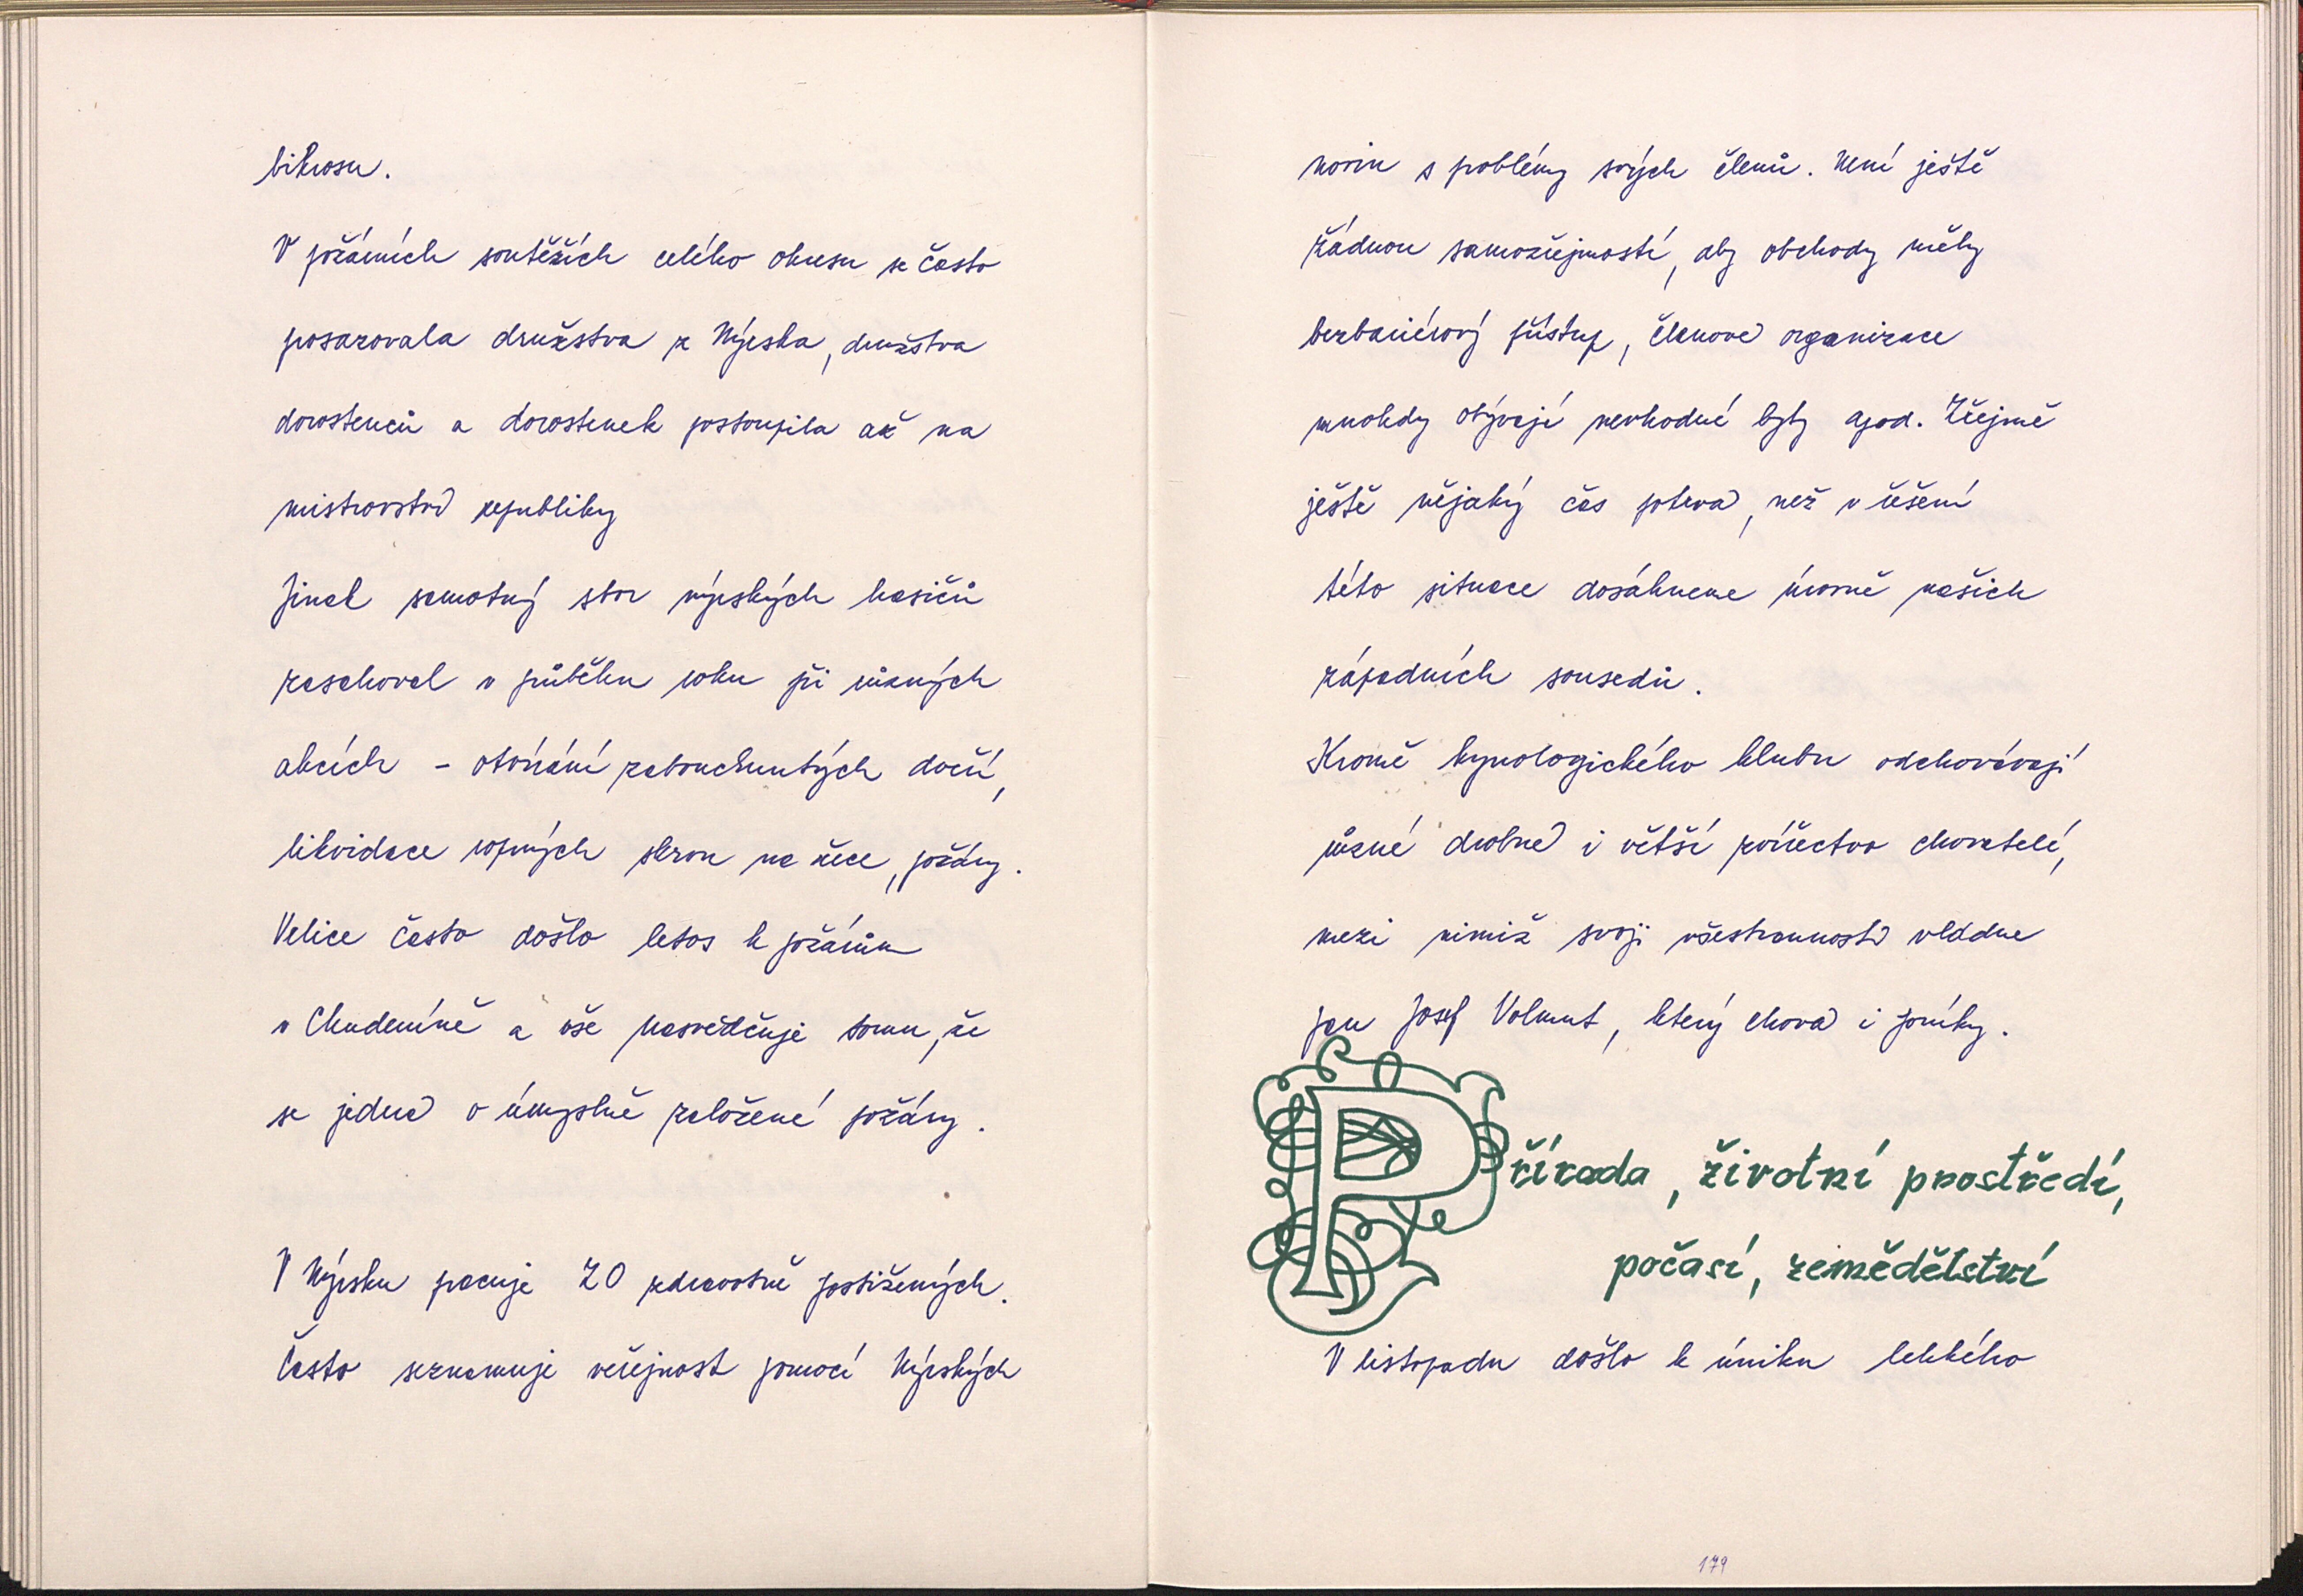 bikrosu.
V požárních soutěžích celého okresu se často
posazovala družstva z Nýrska, družstva
dorostenců a dorostenek postoupila až na
mistrovství republiky
Jinak samotný sbor nýrských hasičů
zasahoval v průběhu roku při různých
akcích - otvírání zabouchnutých dveří,
likvidace ropných skvrn na řece, požáry.
Velice často došlo letos k požárům
v Chudeníně a vše nasvědčuje tomu, že
se jedná o úmyslně založené požáry.
V Nýrsku pracuje ZO zdravotně postižených.
Často seznamuje veřejnost pomocí Nýrských
novin s problémy svých členů. Není ještě
žádnou samozřejmostí, aby obchody měly
bezbariérový přístup, členové organizace
mnohdy obývají nevhodné byty apod. Zřejmě
ještě nějaký čas potrvá, než v řešení
této situace dosáhneme úrovně našich
západních sousedů.
Kromě kynologického klubu odchovávají
různé drobné i větší zvířectvo chovatelé,
mezi nimiž svojí všestranností vládne
pan Josef Volmut, který chová i poníky.
Příroda, životní prostředí,
počasí, zemědělství
V listopadu došlo k úniku lehkého
179